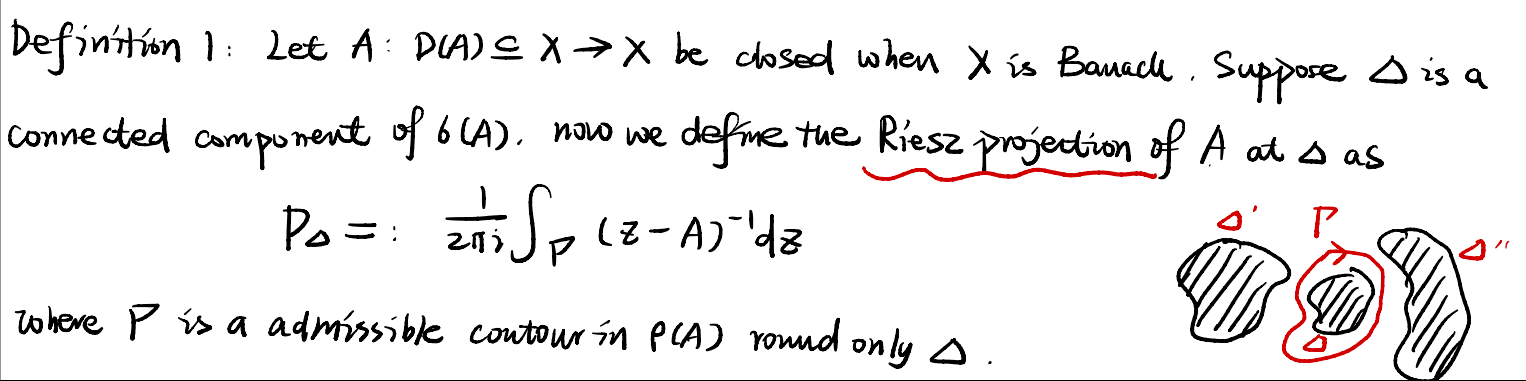 Definition 1: Let A: D(A) ⊆ X → X be closed when X is Banach. Suppose Δ is a
connected component of σ(A). now we define the Riesz projection of A at Δ as
P_Δ =: \frac{1}{2πi} ∫_Γ (z-A)^{-1} dz
Δ' Γ Δ'' Δ
where Γ is a admissible contour in ρ(A) round only Δ.